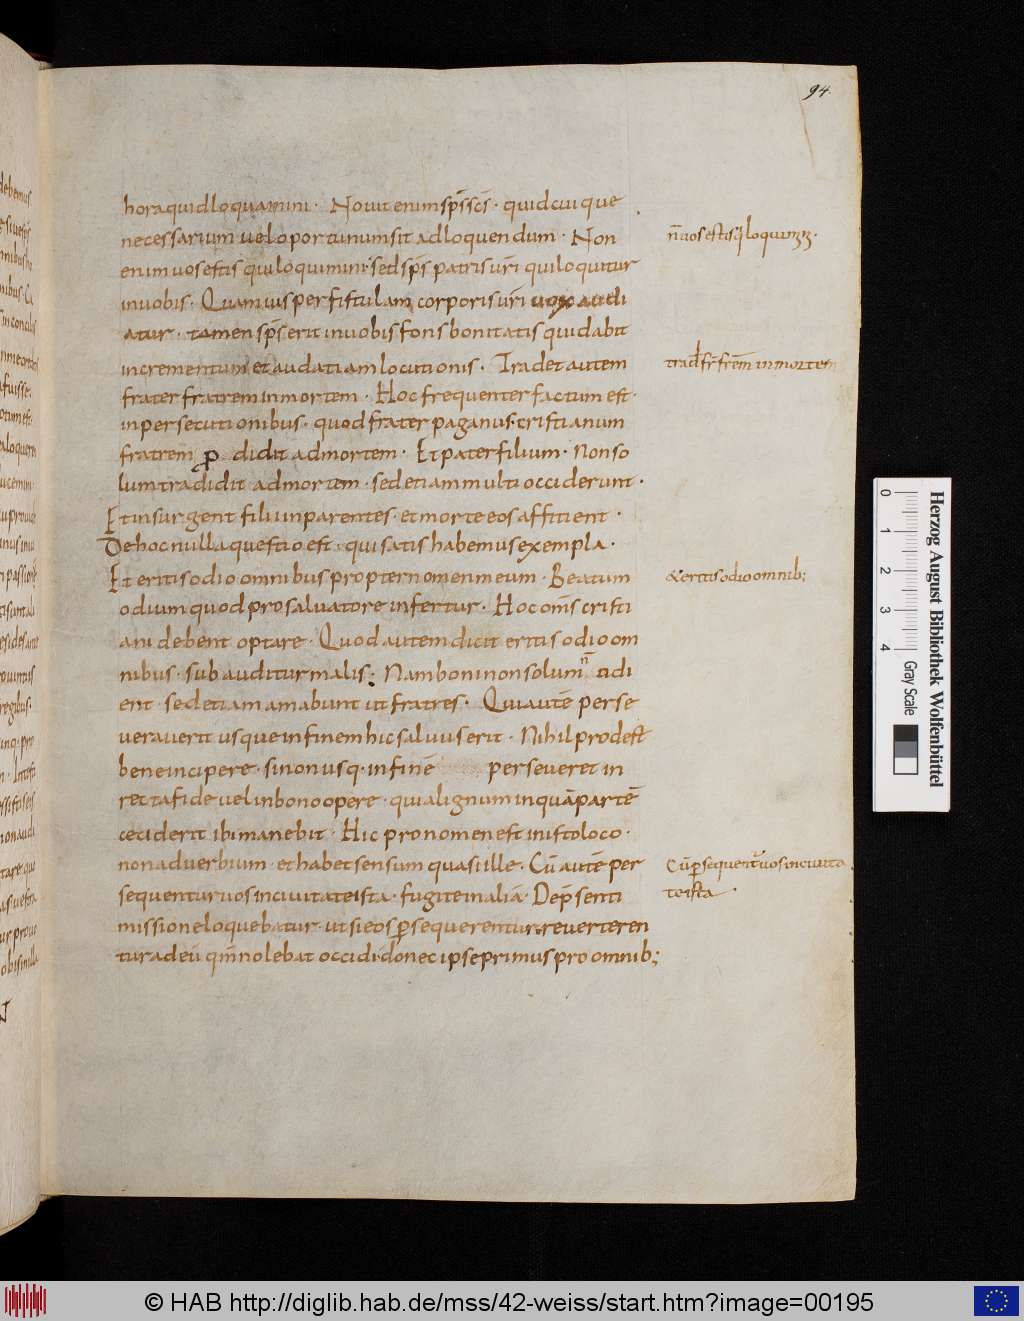 94.
hora quid loquamini · Novit enim sp̄s sc̄s · quid cuique
necessarium vel oportunum sit ad loquendum · Non
enim vos estis qui loquimini · sed sp̄s patris ur̄i qui loquitur
in vobis · Quamvis per fistulam corporis ur̄i uox audi
atur · tamen sp̄s erit in vobis fons bonitatis qui dabit
incrementum et audatiam locutionis · Tradet autem
frater fratrem in mortem · Hoc frequenter factum est ·
in persecutionibus · quod frater paganus · cristianum
fratrem ꝓdidit ad mortem · Et pater filium · Non so
lum tradidit ad mortem · sed etiam multi occiderunt ·
Et insurgent filii in parentes · et morte eos affitient ·
De hoc nulla questio est · qui satis habemus exempla ·
Et eritis odio omnibus propter nomen meum · Beatum
odium quod pro salvatore infertur · Hoc om̄s cristi
ani debent optare · Quod autem dicit eritis odio om
nibus · subauditur malis · Nam boni non solum n̄ odi
ent · sed etiam amabunt ut fratres · Qui autē perse
veraverit usque in finem hic salvus erit · Nihil prodest
bene incipere · si non usq · in finē perseveret in
recta fide vel in bono opere · quia lignum in quā partē
ceciderit ibi manebit · Hic pronomen est in isto loco ·
non adverbium · et habet sensum quasi ille · Cū autē per
sequentur vos in civitate ista · fugite in aliā · De p̄senti
missione loquebatur · ut si eos ꝑsequerentur reverteren
tur ad eū qm̄ nolebat occidi · donec ipse primus pro omnib;
n̄ vos estis q̄ loq
trad fr̄ frēm in mortem
& eritis odio omnib;
Cū ꝑsequent᷑ vos in civita
te ista ·
0 1 2 3 4
Gray Scale
Herzog August Bibliothek Wolfenbüttel
© HAB http://diglib.hab.de/mss/42-weiss/start.htm?image=00195